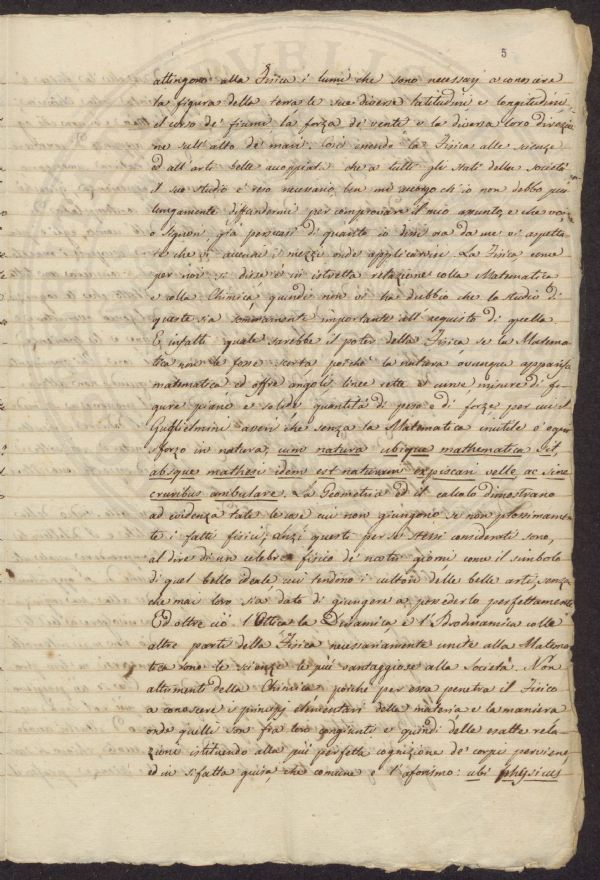 5
attingono alla Fisica i lumi che sono necessarj a conoscere
la figura della terra le sue diverse latitudini e longitudini,
il corso de' fiumi la forza de' venti, e la diversa loro direzio
ne sull'alto de' mari. Così essendo la Fisica alle scienze
ed all'arti belle che a tutti gli stati della società
il suo studio è reso necessario, ben mi accorgo ch'io non debbo più
lungamente diffondermi per comprovare il mio assunto, e che voi,
o Signori, già persuasi di quanto io dissi ora da me vi aspetta
te che vi accenni i mezzi onde applicarvisi. La Fisica come
per noi si disse è in istretta relazione colla Matematica
e colla Chimica, quindi non v'ha dubbio che lo studio di
queste sia sommamente importante all'acquisto di quella
E infatti quale sarebbe il poter della Fisica se la Matema
tica non le fosse scorta poichè la natura ovunque apparisce
matematica, ed offre angoli, linee rette e curve misure di fi
gure piane e solide quantità di peso e di forze per cui il
Guglielmini averì che senza la Matematica inutile è ogni
sforzo in natura, cum natura ubique mathematica sit,
absque mathesi idem est naturam expiscari velle, ac sine
cruribus ambulare. La Geometria ed il calcolo dimostrano
ad evidenza tali cose a cui non giungono se non prossimamen
te i fatti fisici; anzi questi per se stessi considerati sono,
al dire di un celebre fisico de' nostri giorni come il simbolo
di quel bello ideale, cui tendono i cultori delle belle arti, senza
che mai loro sia dato di giungere a possederlo perfettamente
Ed oltre ciò l'Ottica la Dinamica, e l'Idrodinamica colle
altre parti della Fisica necessariamente unite alla Matema
tica sono le scienze le più vantaggiose alla Società. Non
altrimenti della Chimica, poichè per essa penetra il Fisico
a conoscere i principj elementari della materia e la maniera
onde quelli son fra loro congiunti e quindi delle esatte rela
zioni istituendo alla più perfetta cognizione de' corpi perviene,
ed in sì fatta guisa, che comune è l'aforismo: ubi physicus